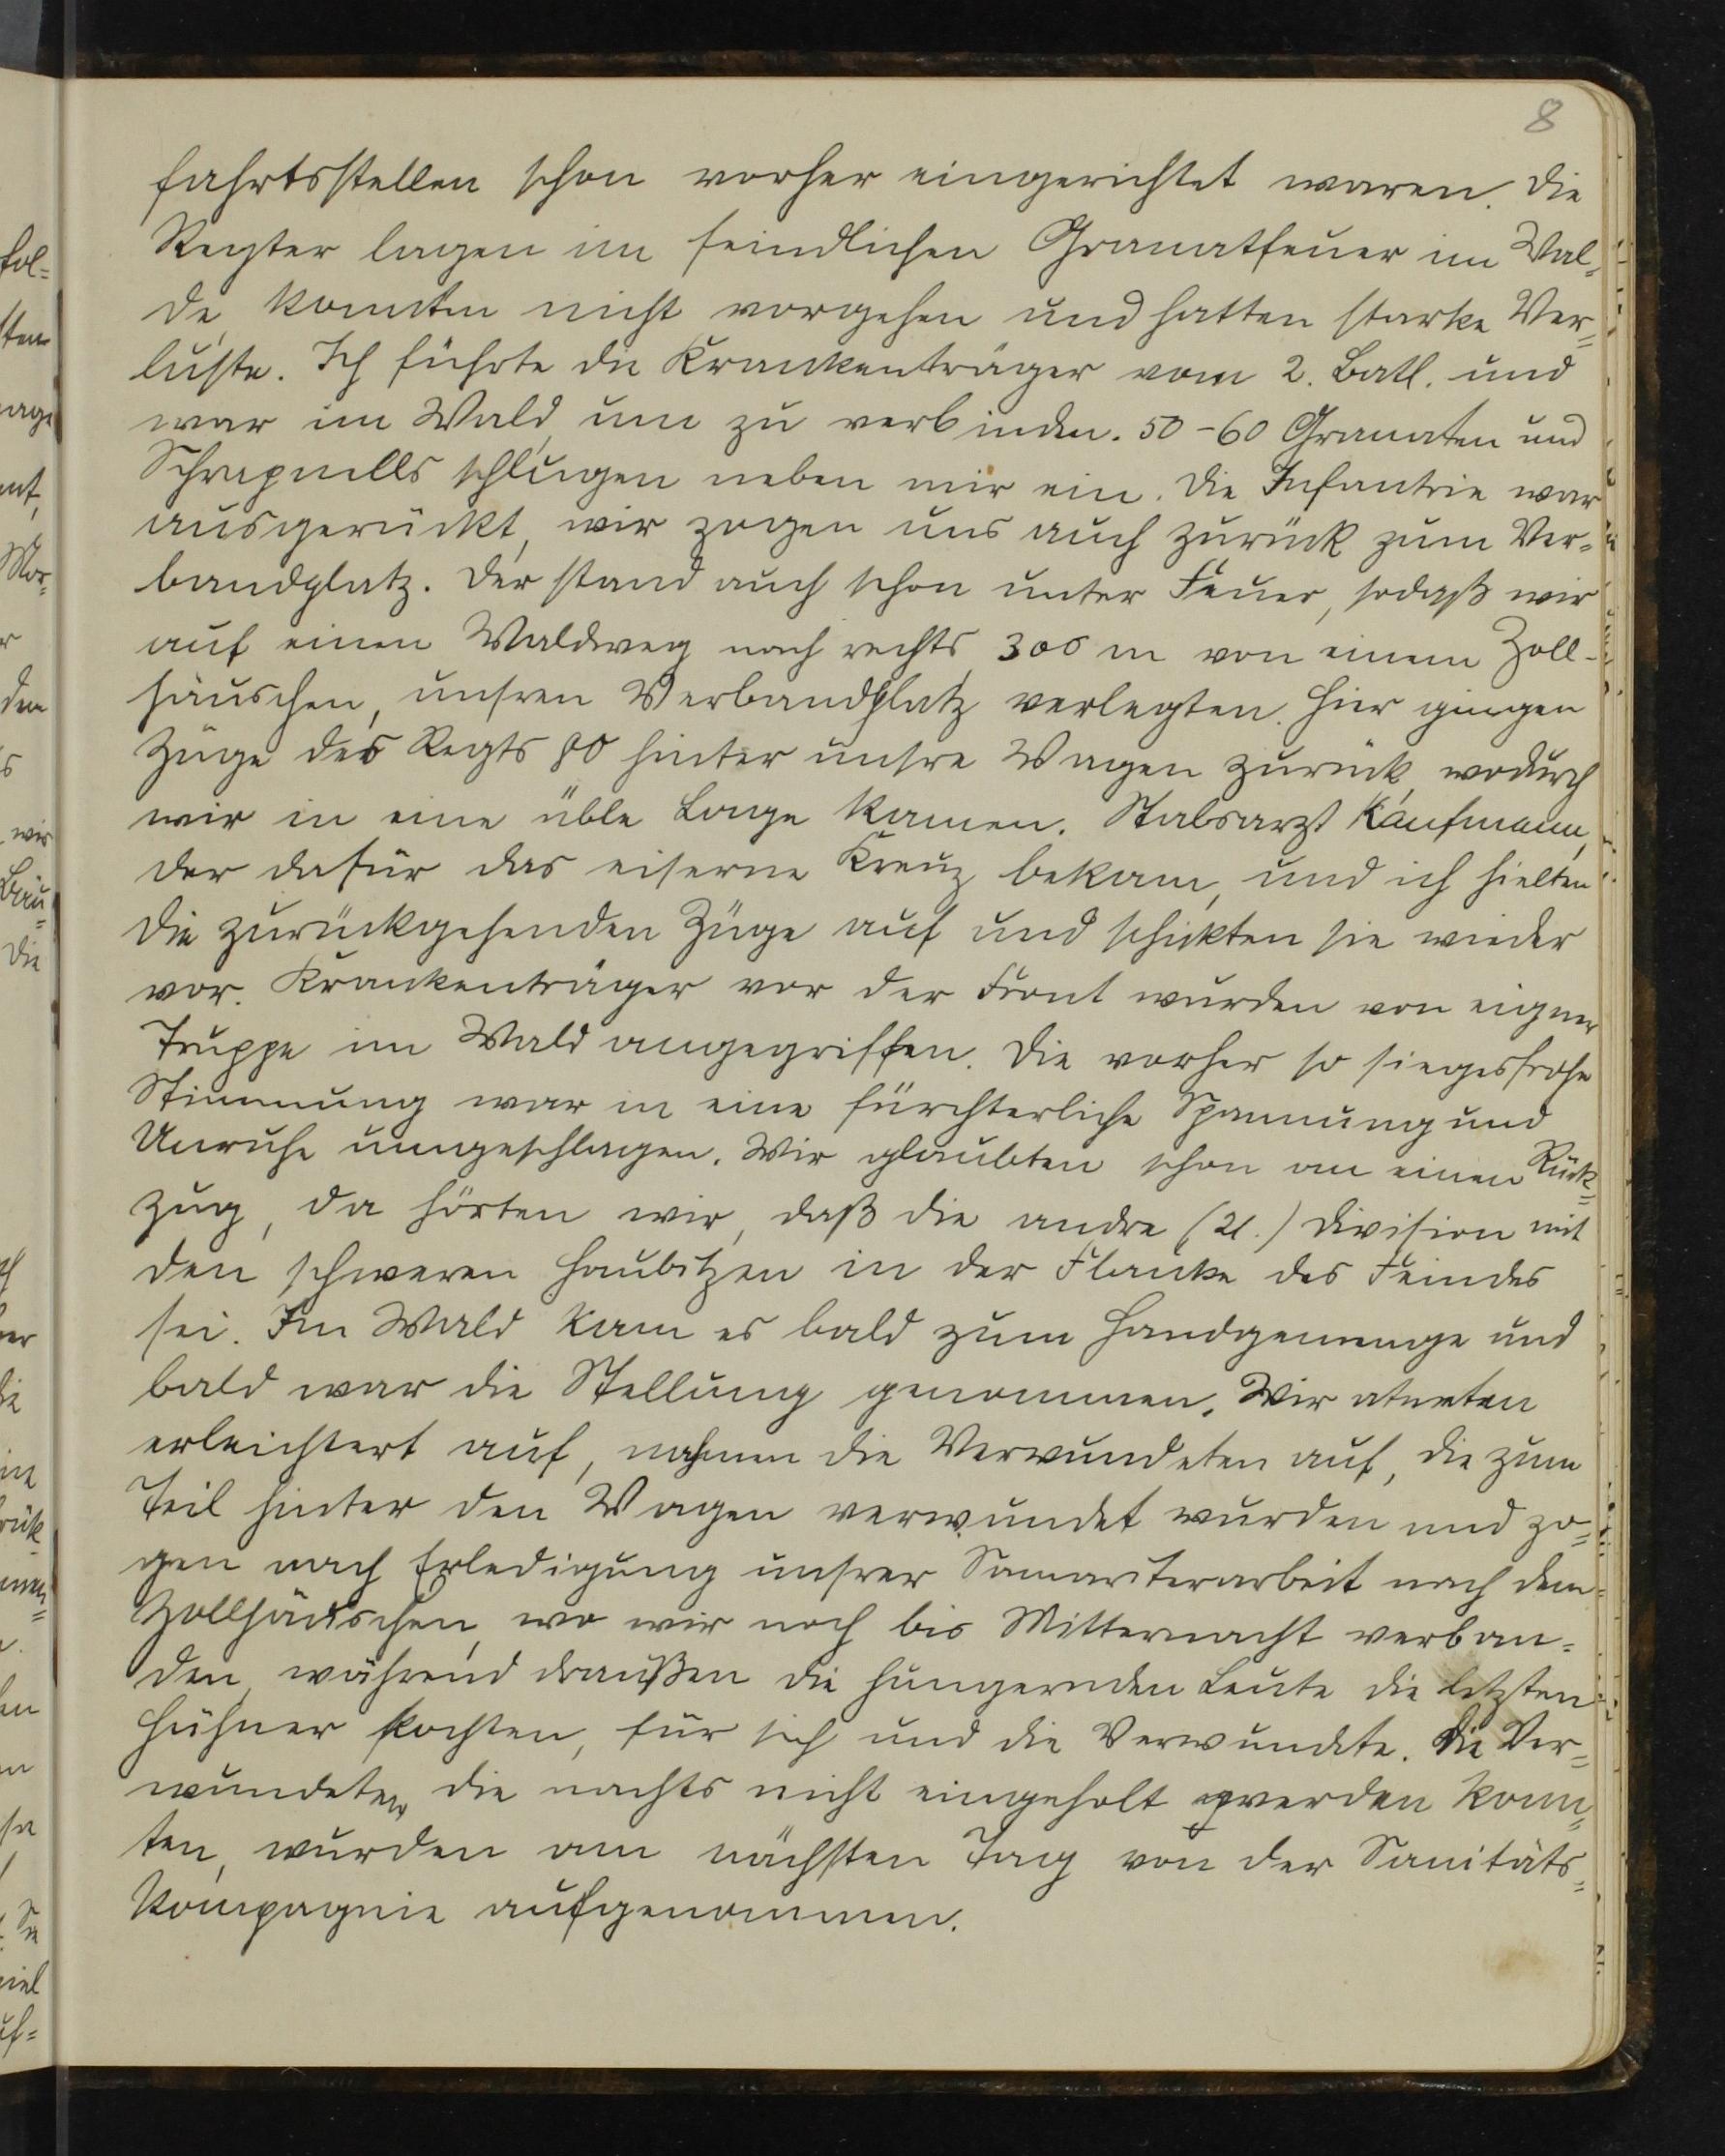 8
fahrtsstellen schon vorher eingerichtet waren. Die
Regter lagen im feindlichen Granatfeuer im Wal-
de, konnten nicht vorgehen und hatten starke Ver=
luste. Ich führte die Krankenträger vom 2. Batl. und
war im Wald, um zu verbinden. 50-60 Granaten und
Schrapnells schlugen neben mir ein. Die Infantrie war
ausgerückt, wir zogen uns auch zurück zum Ver=
bandplatz. Der stand auch schon unter Feuer, sodaß wir
auf einen Waldweg nach rechts, 300 m von einem Zoll-
häuschen, unsren Verbandplatz verlegten. Hier gingen
Züge des Regts 80 hinter unsre Wagen zurück, wodurch
wir in eine üble Lage kamen. Stabsarzt Kaufmann,
der dafür das eiserne Kreuz bekam, und ich hielten
die zurückgehenden Züge auf und schickten sie wieder
vor. Krankenträger vor der Front wurden von eigner
Truppe im Wald angegriffen. Die vorher so siegesfrohe
Stimmung war in eine fürchterliche Spannung und
Unruhe umgeschlagen. Wir glaubten schon an einen Rück=
zug, da hörten wir, daß die andre (21.) Division mit
den schweren Haubitzen in der Flanke des Feindes
sei. Im Wald kam es bald zum Handgemenge und
bald war die Stellung genommen. Wir atmeten
erleichtert auf, nahmen die Verwundeten auf, die zum
Teil hinter den Wagen verwundet wurden und zo=
gen nach Erledigung unsrer Samariterarbeit nach dem
Zollhäuschen, wo wir noch bis Mitternacht verban=
den, während draußen die hungernden Leute die letzten
Hühner kochten, für sich und die Verwundete. Die Ver=
wundeten, die nachts nicht eingeholt werden konn=
ten, wurden am nächsten Tag von der Sanitäts=
kompagnie aufgenommen.